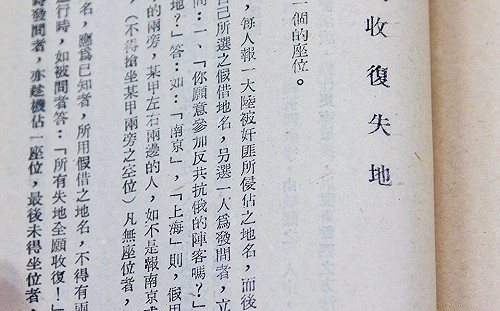 收復失地
一個的座位。
，每人報一大陸被奸匪所侵佔之地名，而後
自己所選之假借地名，另選一人爲發問者，立
問：一、「你願意參加反共抗俄的陣容嗎？」
地？」答：如：「南京」，「上海」則，假用
的兩旁，某甲左右兩邊的人，如不是報南京或
（不得搶坐某甲兩旁之空位）凡無座位者，
名，應爲已知者，所用假借之地名，不得有兩
行時，如被問者答：「所有失地全願收復！」
時發問者，亦趁機佔一座位，最後未得坐位者，